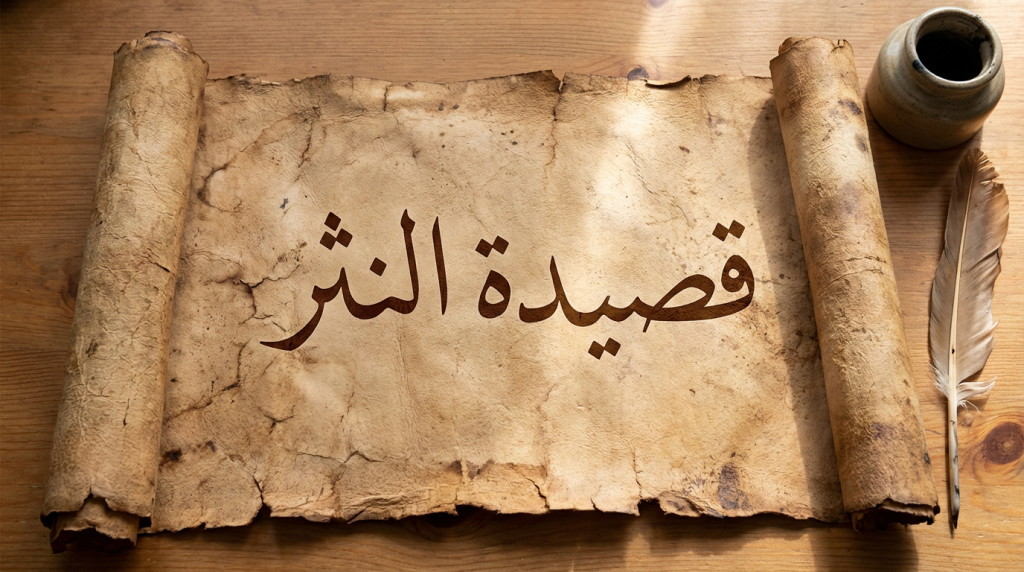 قصيدة النثر